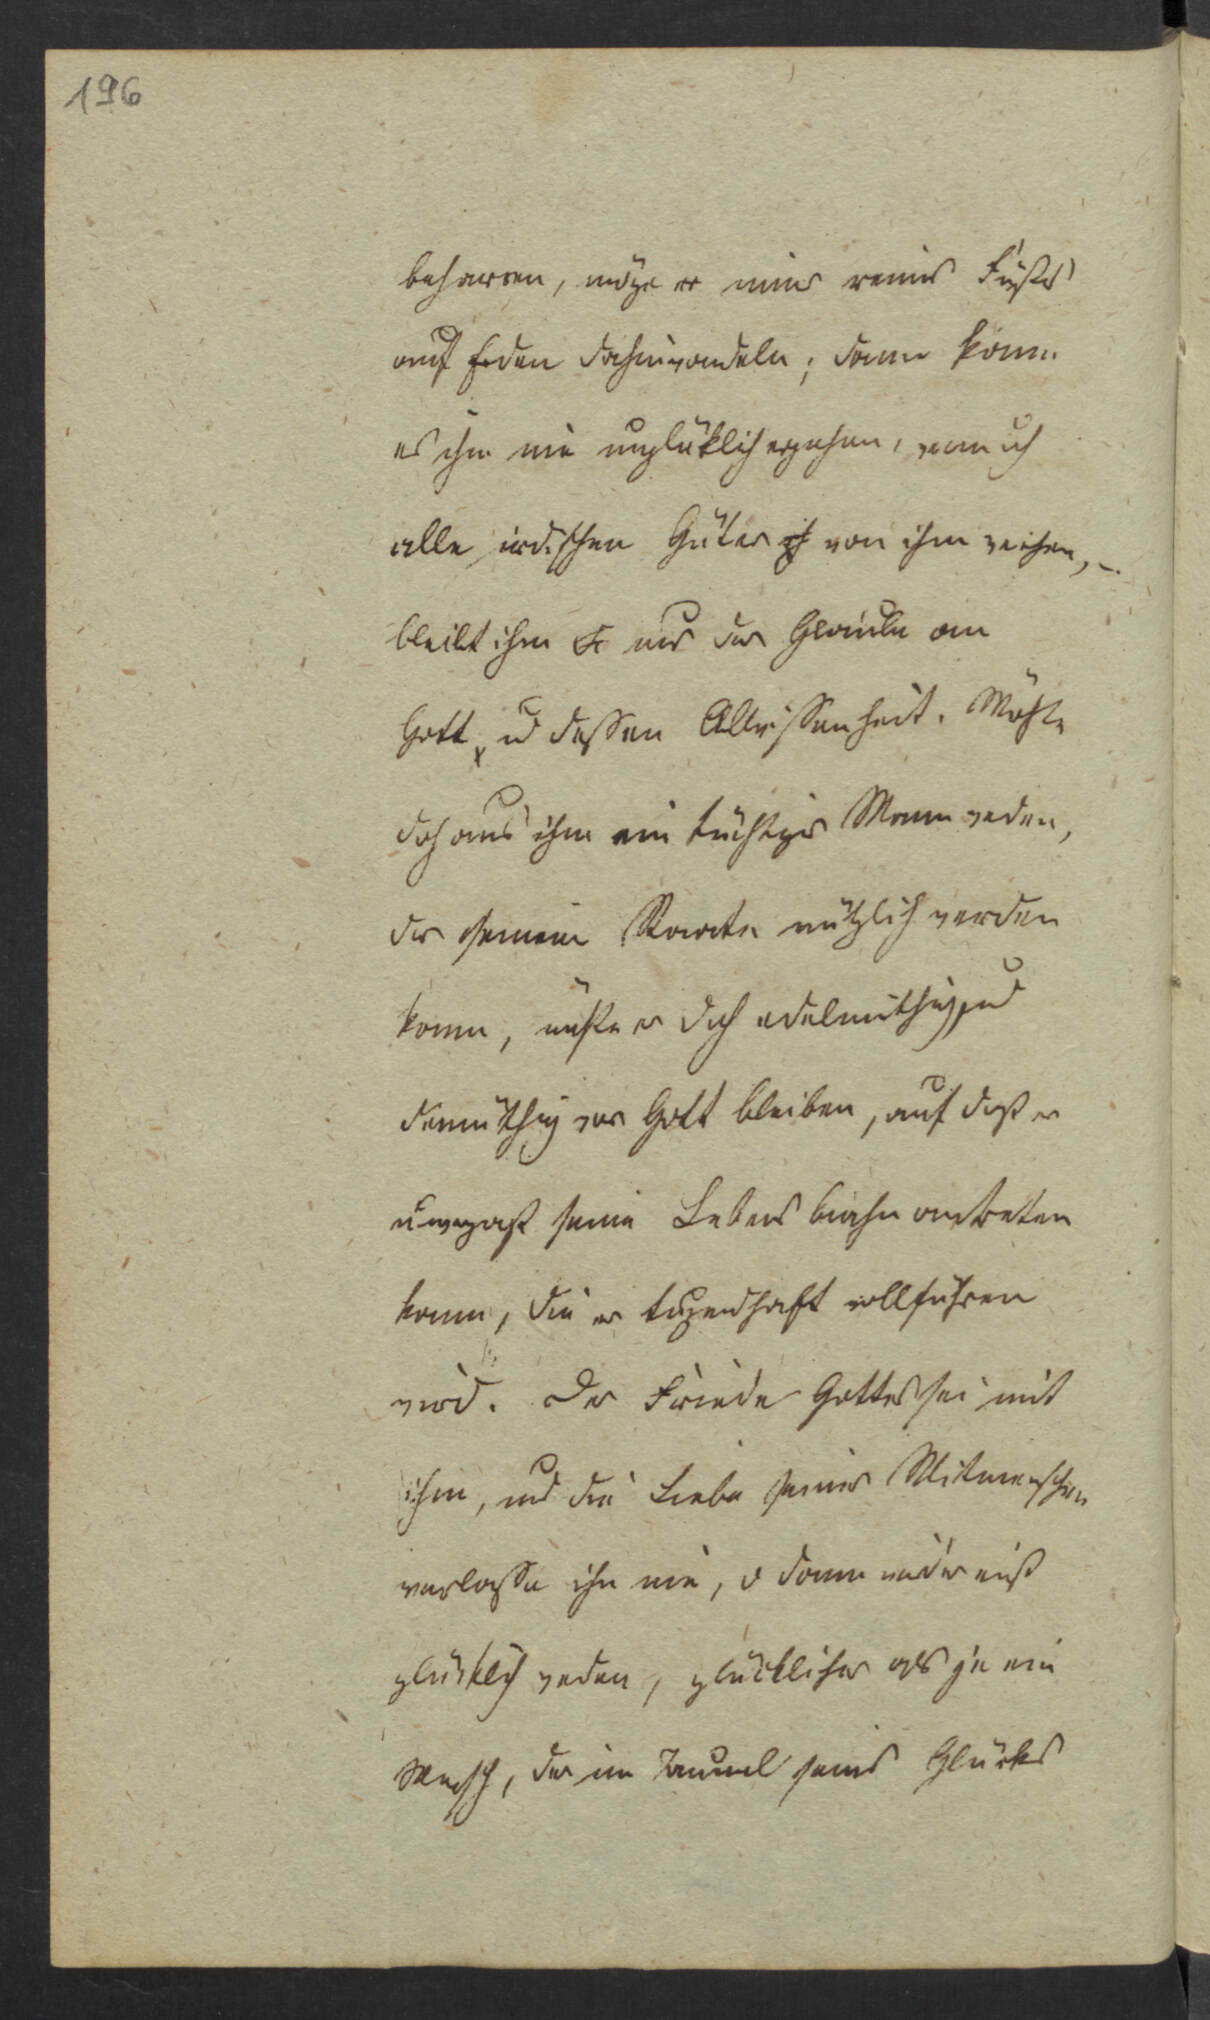 196
beharren, möge er immer reines Fußes
auf Erden dahinwandeln; dann kann
es ihm nie unglüklich ergehen, wenn ich
alle irdischen Güter von ihm weichen, –
bleibt ihm nur der Glaube an
Gott, u dessen Allwissenheit. Möchte
doch aus ihm ein tüchtiger Mann werden,
der seinem Staate nützlich werden
kann, müßte er doch edelmüthig und
demüthig vor Gott bleiben, auf daß er
seine Lebens bahn antreten
kann, die er tugendhaft vollführen
wird. Der Friede Gottes sei mit
ihm, und die Liebe seiner Mitmenschen
verlasse ihn nie, o dann wird er
glücklich werden, glücklicher als je ein
Mensch, der im Taumel seines Glücks